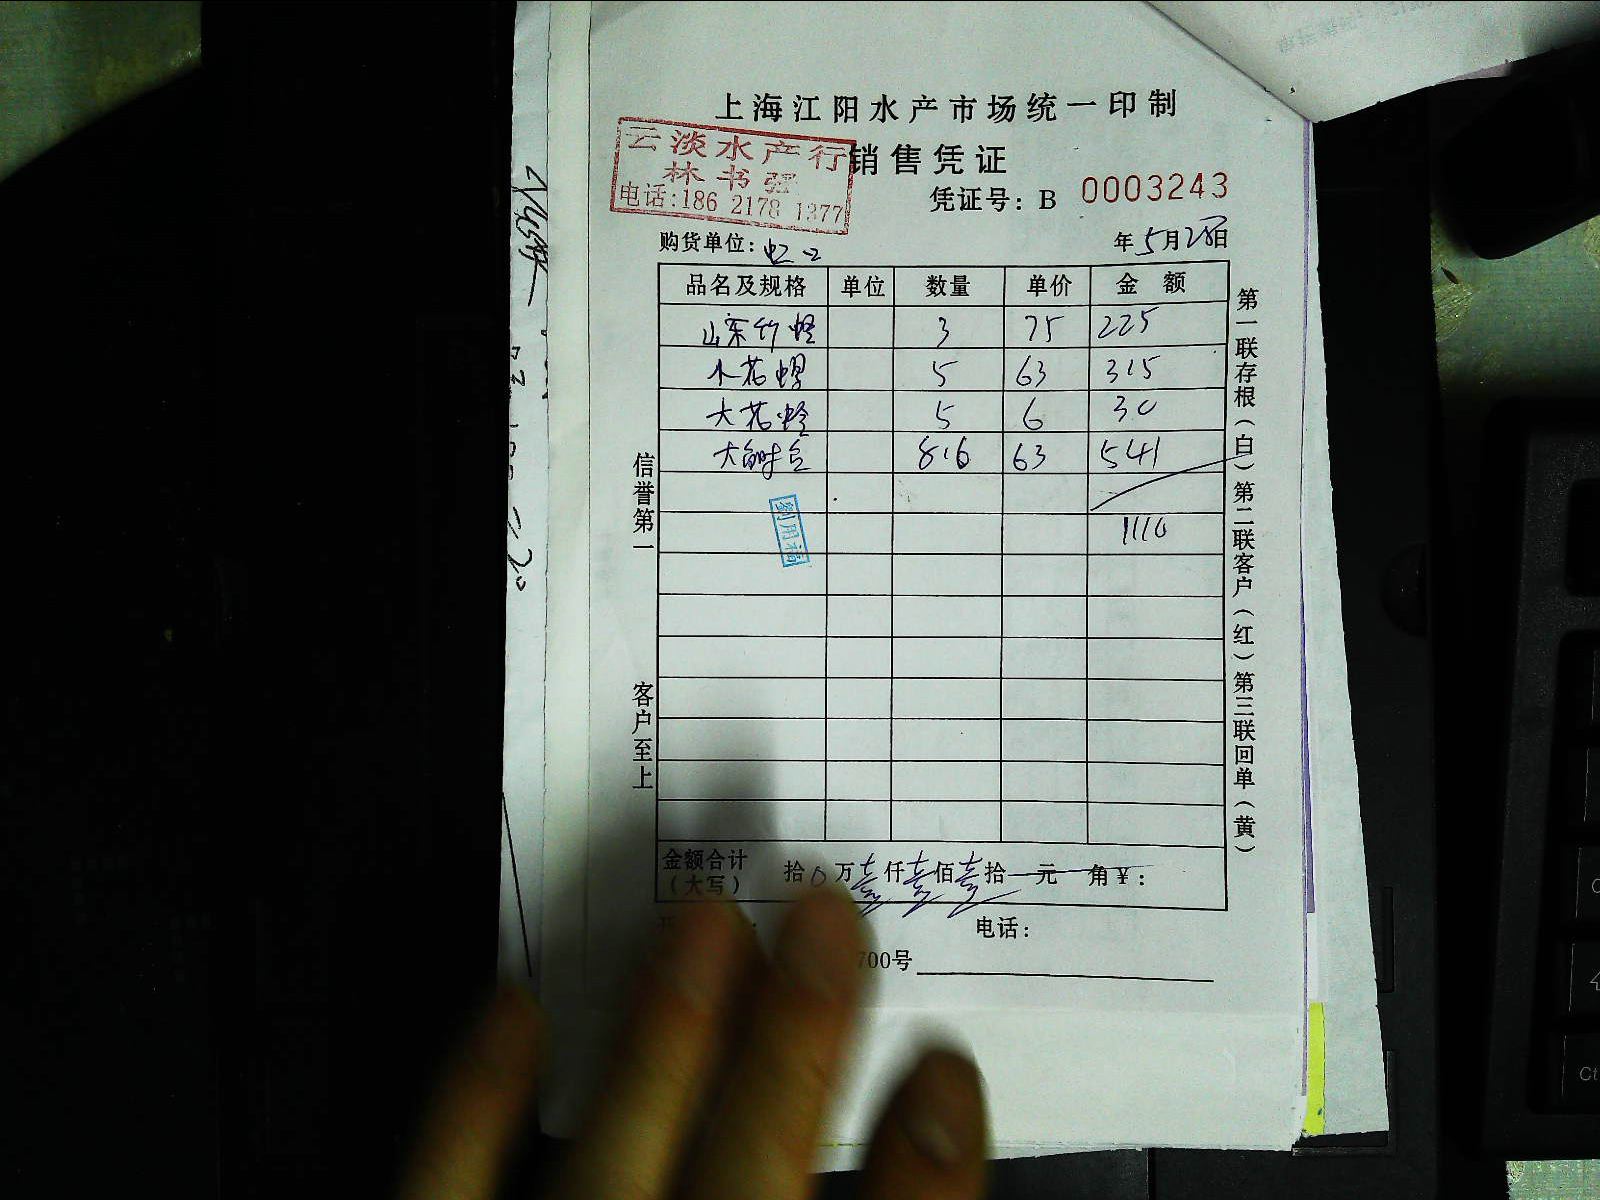 上海江阳水产市场统一印制
云淡水产行
林书强
电话:186 2178 1377
销售凭证
凭证号: B 0003243
购货单位: 虹口
年5月28日
品名及规格 单位 数量 单价 金额
山东竹蛏 3 75 225
小花螺 5 63 315
大花蛤 5 6 30
大鲜包 8.6 63 541
1110
刘用福
信誉第一
客户至上
第一联存根(白)第二联客户(红)第三联回单(黄)
金额合计
(大写) 拾0万壹仟壹佰壹拾元 角¥:
电话:
700号
Ct